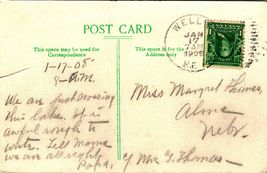 POST CARD
This space may be used for
Correspondence
This space is for the
Address only
WELL
JAN
17
7 AM
1908
N.Y.
1-17-08
8-A.M.
We are just crossing
this lake. It is
awful rough to
write. Tell Mama
we are all right
Papa,
Miss Margret Thomas,
Alma
Nebr.
c/o Mrs G. Thomas-